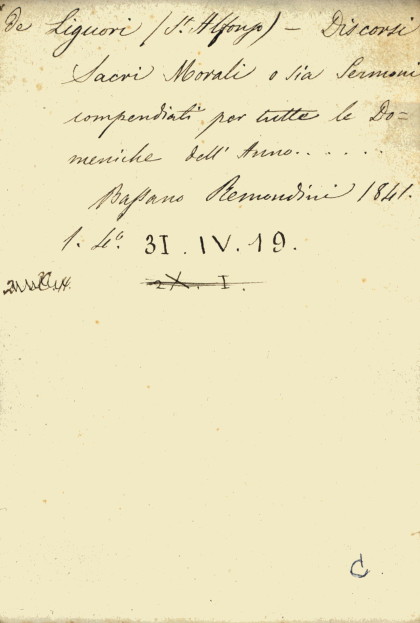 de Liguori (St. Alfonso) – Discorsi
Sacri Morali o sia Sermoni
compendiati per tutte le Do=
meniche dell' Anno......
Bassano Remondini 1841.
1. 4°. 31. IV. 19.
C